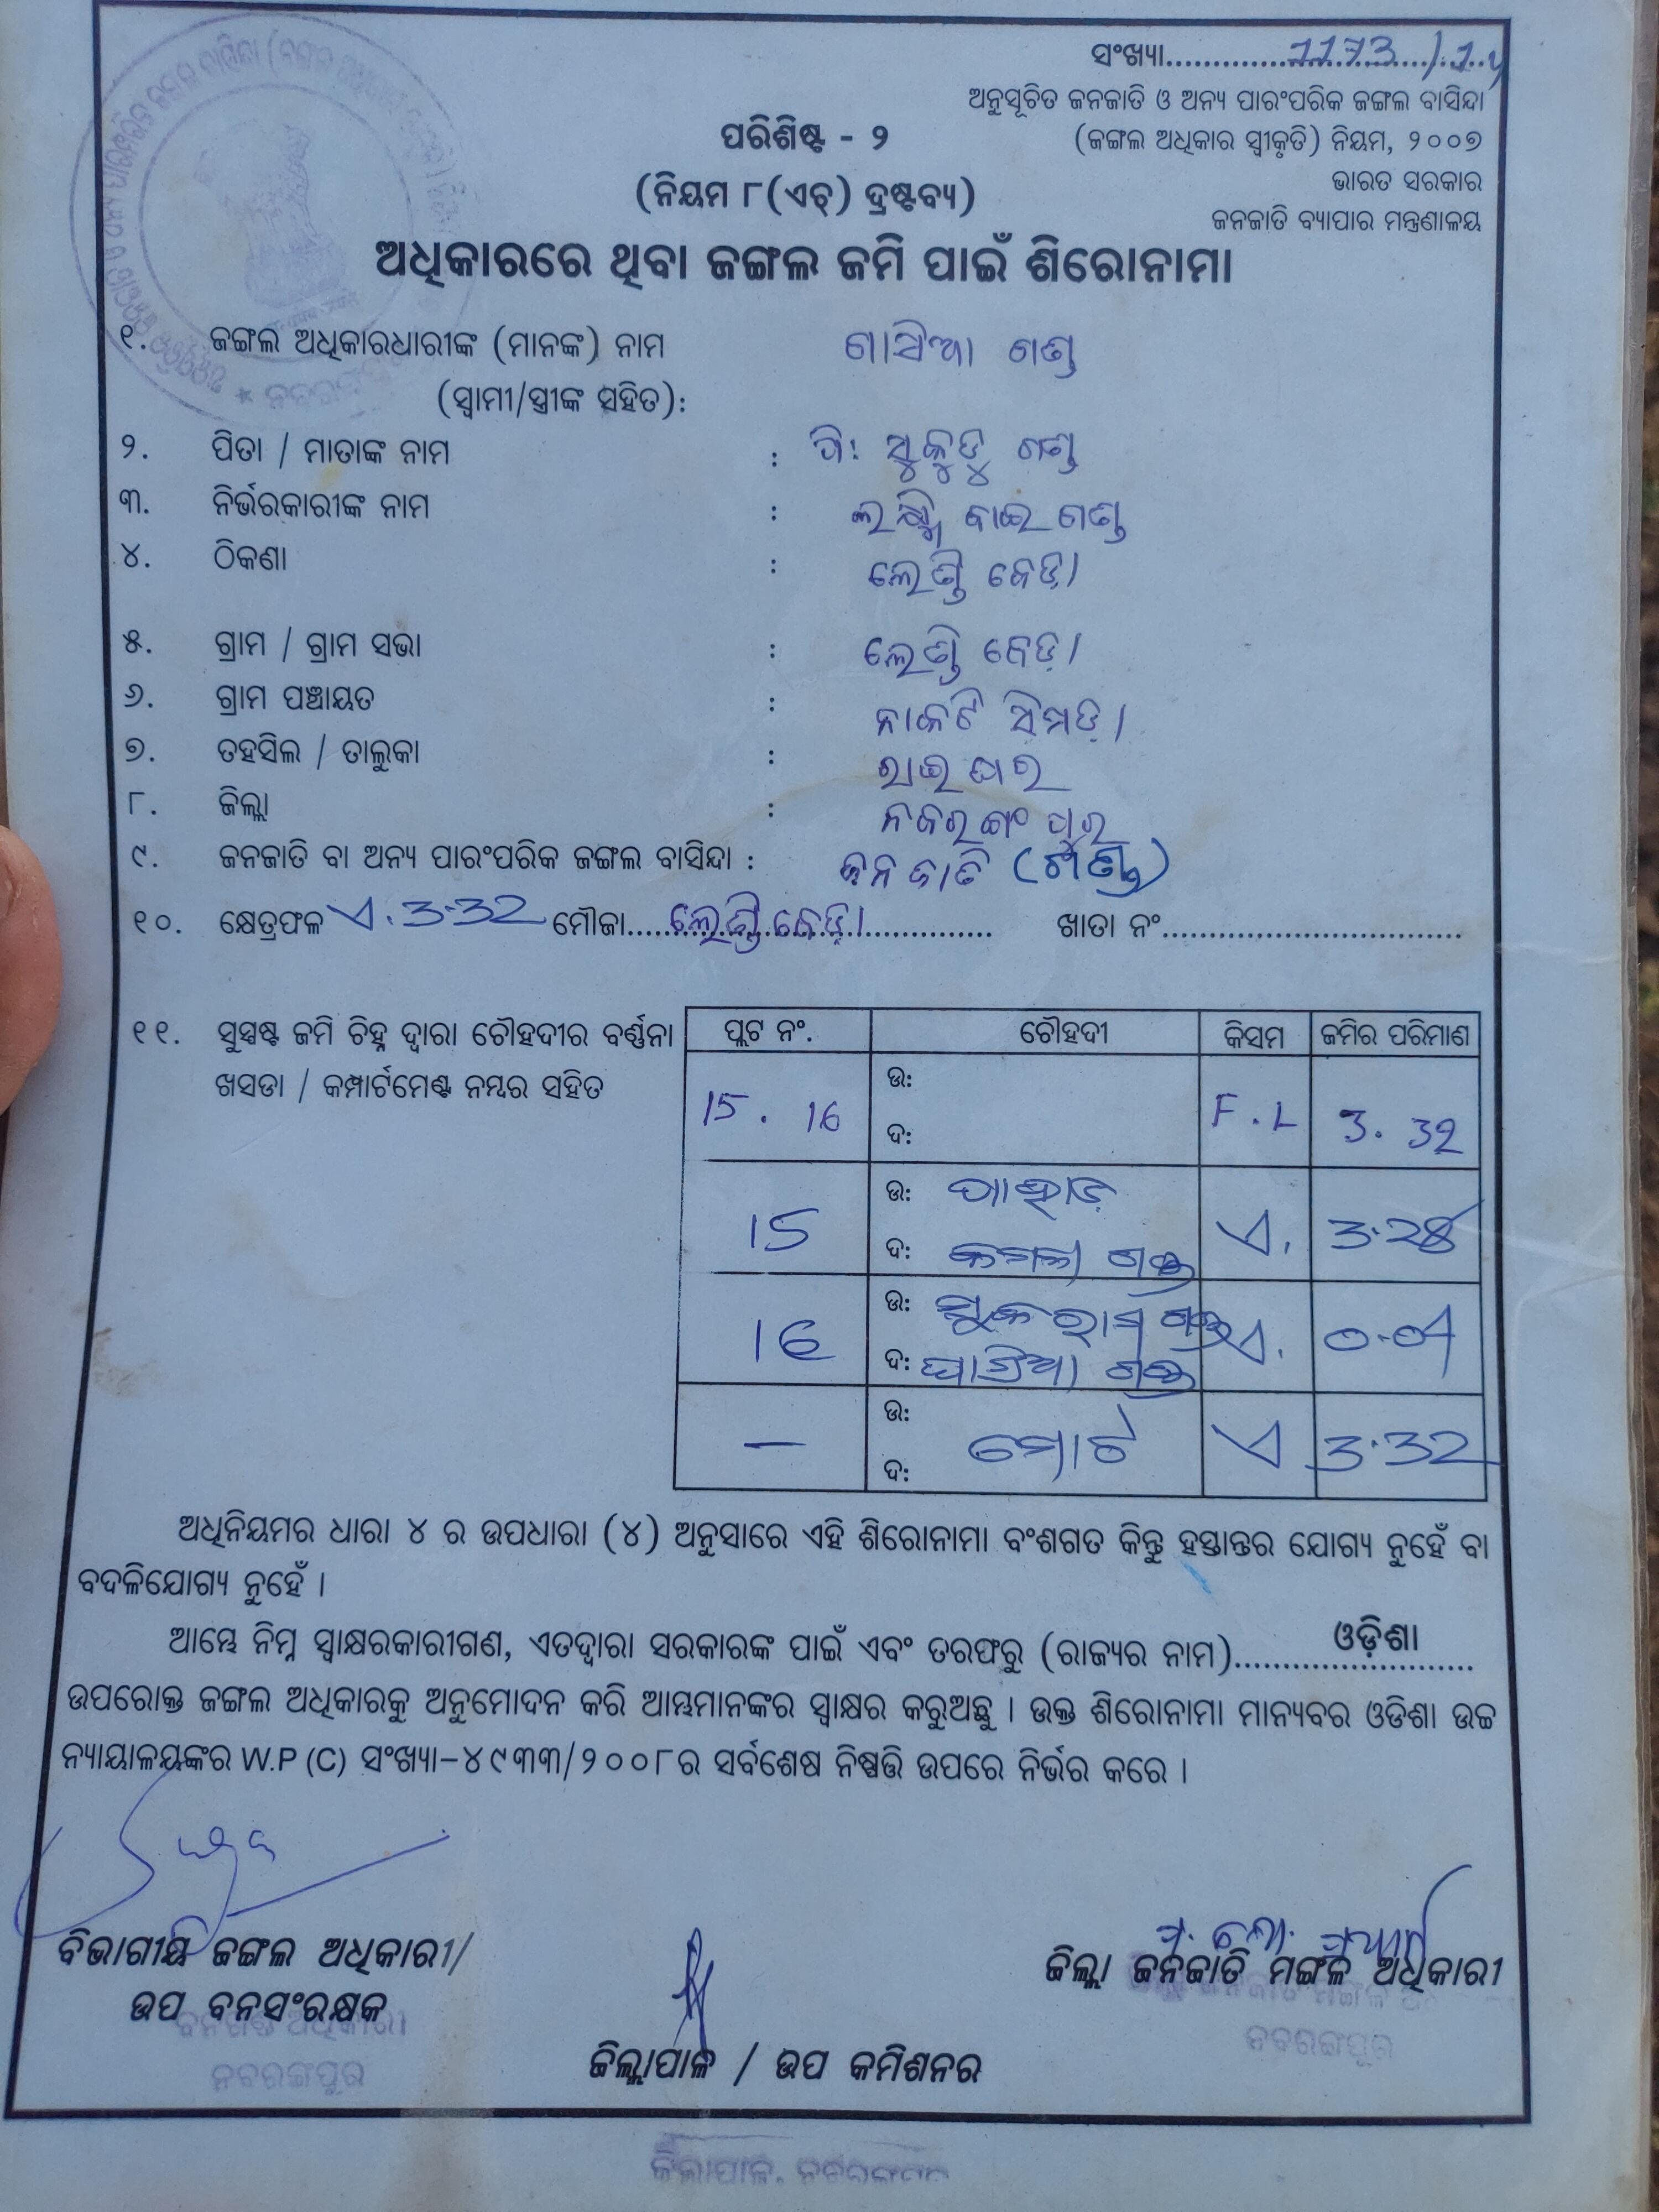 ସଂଖ୍ୟା.............1173/14
ଅନୁସୂଚିତ ଜନଜାତି ଓ ଅନ୍ୟ ପାରଂପରିକ ଜଙ୍ଗଲ ବାସିନ୍ଦା
(ଜଙ୍ଗଲ ଅଧିକାର ସ୍ୱୀକୃତି) ନିୟମ, ୨୦୦୭
ଭାରତ ସରକାର
ଜନଜାତି ବ୍ୟାପାର ମନ୍ତ୍ରଣାଳୟ
ପରିଶିଷ୍ଟ - ୨
(ନିୟମ ୮(ଏଚ୍) ଦ୍ରଷ୍ଟବ୍ୟ)
ଅଧିକାରରେ ଥିବା ଜଙ୍ଗଲ ଜମି ପାଇଁ ଶିରୋନାମା
୧. ଜଙ୍ଗଲ ଅଧିକାରଧାରୀଙ୍କ (ମାନଙ୍କ) ନାମ ଗାସିଆ ଗଣ୍ଡ
(ସ୍ୱାମୀ/ସ୍ତ୍ରୀଙ୍କ ସହିତ):
୨. ପିତା / ମାତାଙ୍କ ନାମ : ପି: ସୁକୁଡୁ ଗଣ୍ଡ
୩. ନିର୍ଭରକାରୀଙ୍କ ନାମ : ଲକ୍ଷ୍ମି ବାଇ ଗଣ୍ଡ
୪. ଠିକଣା : ଲେଣ୍ଡି ବେଡ଼ା
୫. ଗ୍ରାମ / ଗ୍ରାମ ସଭା : ଲେଣ୍ଡି ବେଡ଼ା
୬. ଗ୍ରାମ ପଞ୍ଚାୟତ : ନାକଟି ସିମଡ଼ା
୭. ତହସିଲ / ତାଲୁକା : ରାଇଘର
୮. ଜିଲ୍ଲା : ନବରଙ୍ଗପୁର
୯. ଜନଜାତି ବା ଅନ୍ୟ ପାରଂପରିକ ଜଙ୍ଗଲ ବାସିନ୍ଦା : ଜନଜାତି (ଗଣ୍ଡ)
୧୦. କ୍ଷେତ୍ରଫଳ ଏ.3.32 ମୌଜା.....ଲେଣ୍ଡିବେଡ଼ା......... ଖାତା ନଂ..............................
୧୧. ସୁସ୍ପଷ୍ଟ ଜମି ଚିହ୍ନ ଦ୍ୱାରା ଚୌହଦୀର ବର୍ଣ୍ଣନା
ଖସଡା / କମ୍ପାର୍ଟମେଣ୍ଟ ନମ୍ବର ସହିତ
ପ୍ଲଟ ନଂ. ଚୌହଦୀ କିସମ ଜମିର ପରିମାଣ
15. 16 ଉ: ଦ: F.L 3.32
15 ଉ: ପାହାଡ଼ ଏ. 3.28
ଦ: ଗଣ୍ଡ
16 ଉ: ସୁକରାମ ଗଣ୍ଡ ଏ. 0.04
ଦ: ଘାସିଆ ଗଣ୍ଡ
— ଉ: ଦ: ମୋଟ ଏ 3.32
ଅଧିନିୟମର ଧାରା ୪ ର ଉପଧାରା (୪) ଅନୁସାରେ ଏହି ଶିରୋନାମା ବଂଶଗତ କିନ୍ତୁ ହସ୍ତାନ୍ତର ଯୋଗ୍ୟ ନୁହେଁ ବା
ବଦଳିଯୋଗ୍ୟ ନୁହେଁ ।
ଆମ୍ଭେ ନିମ୍ନ ସ୍ୱାକ୍ଷରକାରୀଗଣ, ଏତଦ୍ୱାରା ସରକାରଙ୍କ ପାଇଁ ଏବଂ ତରଫରୁ (ରାଜ୍ୟର ନାମ)......ଓଡ଼ିଶା......
ଉପରୋକ୍ତ ଜଙ୍ଗଲ ଅଧିକାରକୁ ଅନୁମୋଦନ କରି ଆମ୍ଭମାନଙ୍କର ସ୍ୱାକ୍ଷର କରୁଅଛୁ । ଉକ୍ତ ଶିରୋନାମା ମାନ୍ୟବର ଓଡିଶା ଉଚ୍ଚ
ନ୍ୟାୟାଳୟଙ୍କର W.P (C) ସଂଖ୍ୟା-୪୯୩୩/୨୦୦୮ର ସର୍ବଶେଷ ନିଷ୍ପତ୍ତି ଉପରେ ନିର୍ଭର କରେ ।
ବିଭାଗୀୟ ଜଙ୍ଗଲ ଅଧିକାରୀ/
ଉପ ବନସଂରକ୍ଷକ
ବନଖଣ୍ଡ ଅଧିକାରୀ
ନବରଙ୍ଗପୁର
ଜିଲ୍ଲାପାଳ / ଉପ କମିଶନର
ଜିଲ୍ଲା ଜନଜାତି ମଙ୍ଗଳ ଅଧିକାରୀ
ନବରଙ୍ଗପୁର
ଜିଲ୍ଲାପାଳ, ନବରଙ୍ଗପୁର